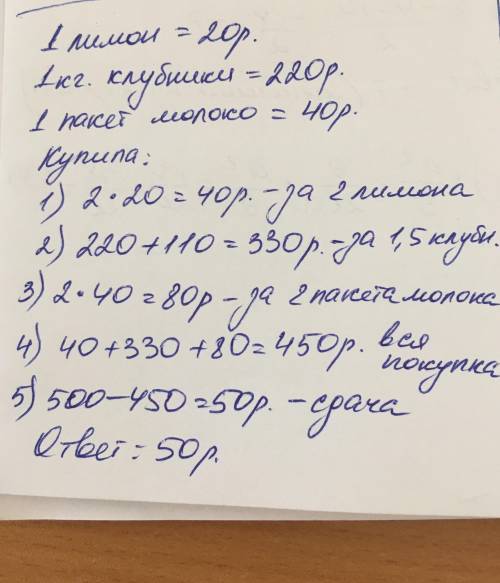 1 лимон = 20р.
1 кг. клубники = 220р.
1 пакет молоко = 40р.
Купила:
1) 2·20 = 40р. – за 2 лимона
2) 220 + 110 = 330р. – за 1,5 клубн.
3) 2·40 = 80р – за 2 пакета молока
4) 40 + 330 + 80 = 450р. вся покупка
5) 500 – 450 = 50р. – сдача
Ответ: 50р.